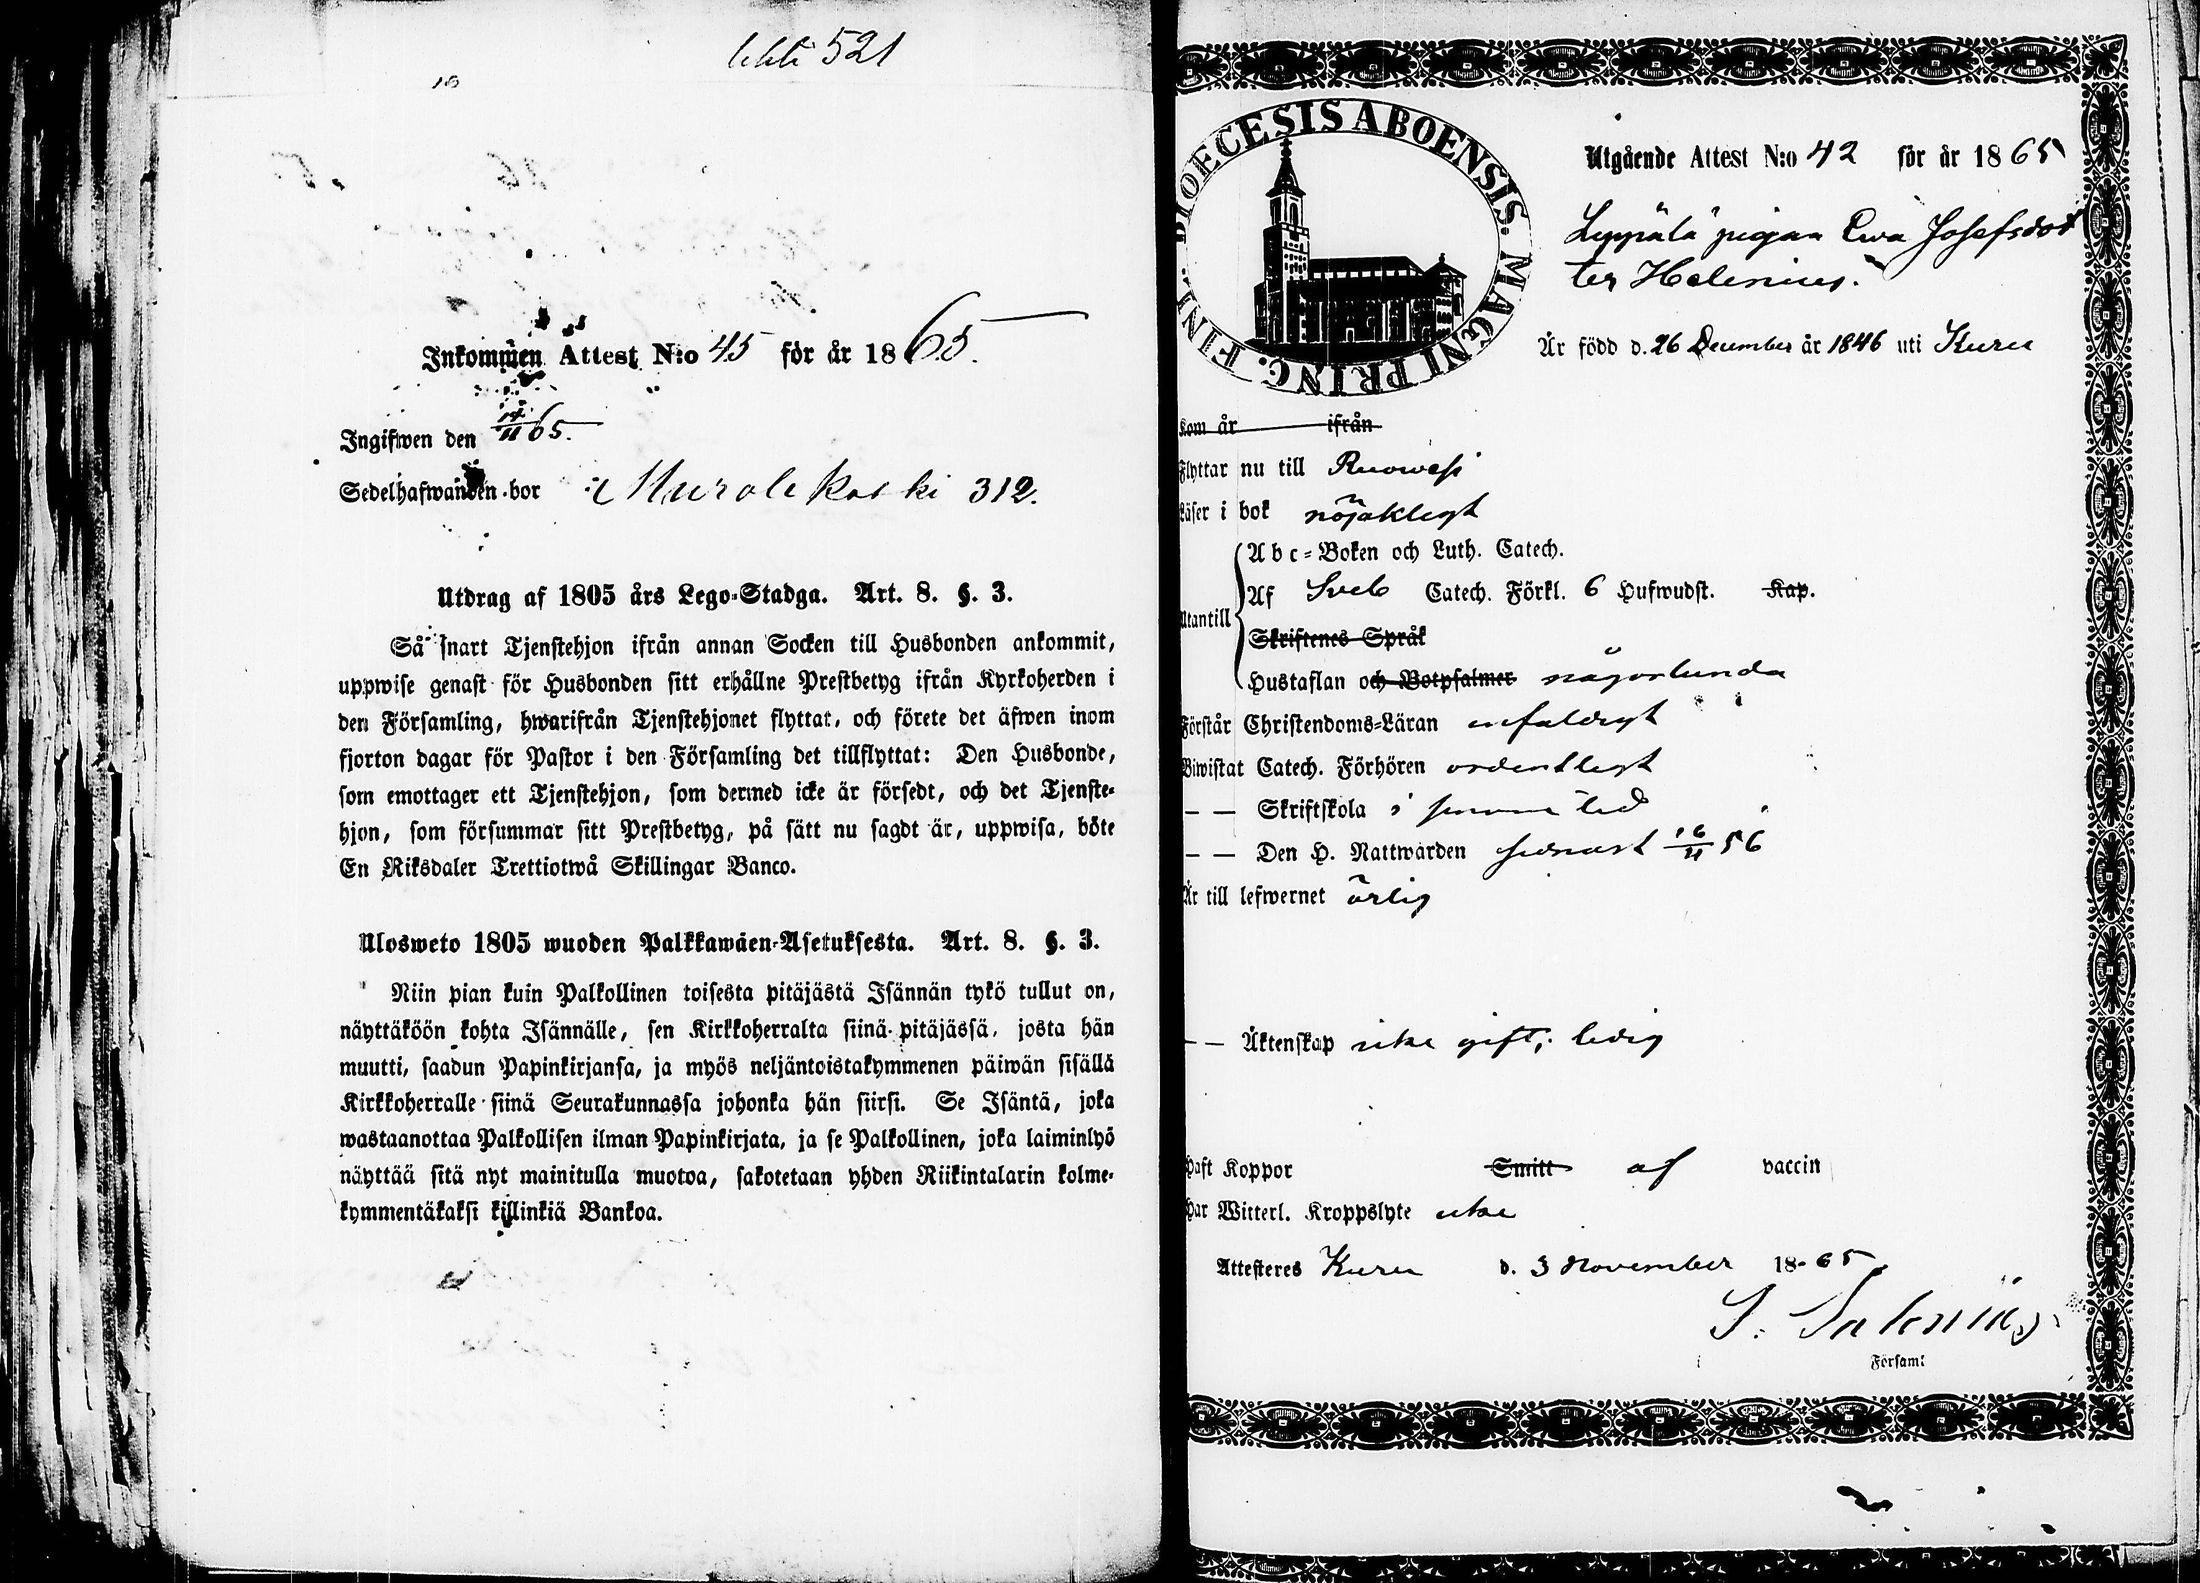 lehti 521
10
Inkommen Attest N:o 45 för år 1865.
Ingifwen den 14/11 65.
Sedelhafwanden bor i Murolekoski 312.
Utdrag af 1805 års Lego-Stadga. Art. 8. §. 3.
Så snart Tjenstehjon ifrån annan Socken till Husbonden ankommit,
uppwise genast för Husbonden sitt erhållne Prestbetyg ifrån Kyrkoherden i
den Församling, hwarifrån Tjenstehjonet flyttat, och förete det äfwen inom
fjorton dagar för Pastor i den Församling det tillflyttat: Den Husbonde,
som emottager ett Tjenstehjon, som dermed icke är försedt, och det Tjenste-
hjon, som försummar sitt Prestbetyg, på sätt nu sagdt är, uppwisa, böte
En Riksdaler Trettiotwå Skillingar Banco.
Ulosweto 1805 wuoden Palkkawäen-Asetuksesta. Art. 8. §. 3.
Niin pian kuin Palkollinen toisesta pitäjästä Isännän tykö tullut on,
näyttäköön kohta Isännälle, sen Kirkkoherralta siinä pitäjässä, josta hän
muutti, saadun Papinkirjansa, ja myös neljäntoistakymmenen päiwän sisällä
Kirkkoherralle siinä Seurakunnassa johonka hän siirsi. Se Isäntä, joka
wastaanottaa Palkollisen ilman Papinkirjata, ja se Palkollinen, joka laiminlyö
näyttää sitä nyt mainitulla muotoa, sakotetaan yhden Riikintalarin kolme-
kymmentäkaksi killinkiä Bankoa.
DIOECESIS ABOENSIS. MAGNI PRINC. FINL.
Utgående Attest N:o 42 för år 1865
Leppälä pigan Ewa Josefsdot
ter Helenius.
Är född d. 26 December år 1846 uti Kuru
Kom år ifrån
Flyttar nu till Ruowesi
Läser i bok nöjaktigt
Utantill
Abc-Boken och Luth. Catech.
Af Sveb Catech. Förkl. 6 Hufwudst. Kap.
Skriftenes Språk
Hustaflan och Botpsalmer någorlunda
Förstår Christendoms-Läran enfaldigt
Biwistat Catech. Förhören ordentligt
— — Skriftskola i sinom tid
— — Den H. Nattwarden senast 16/11 56
Är till lefwernet ärlig
— — Äktenskap icke gift; ledig
Haft Koppor Smitt af vaccin
Har Witterl. Kroppslyte icke
Attesteres Kuru d. 3 November 1865
S. Salenius
Församl